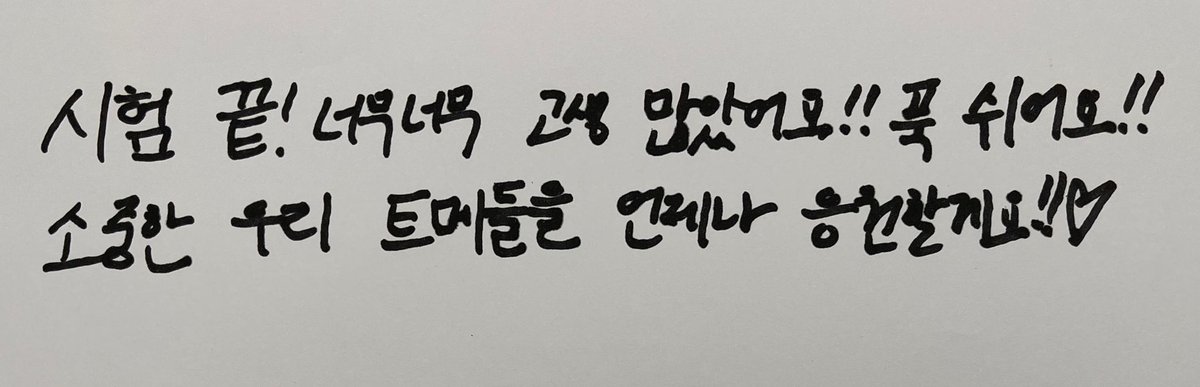 시험 끝! 너무너무 고생 많았어요!! 푹 쉬어요!!
소중한 우리 트메들을 언제나 응원할게요!!♡